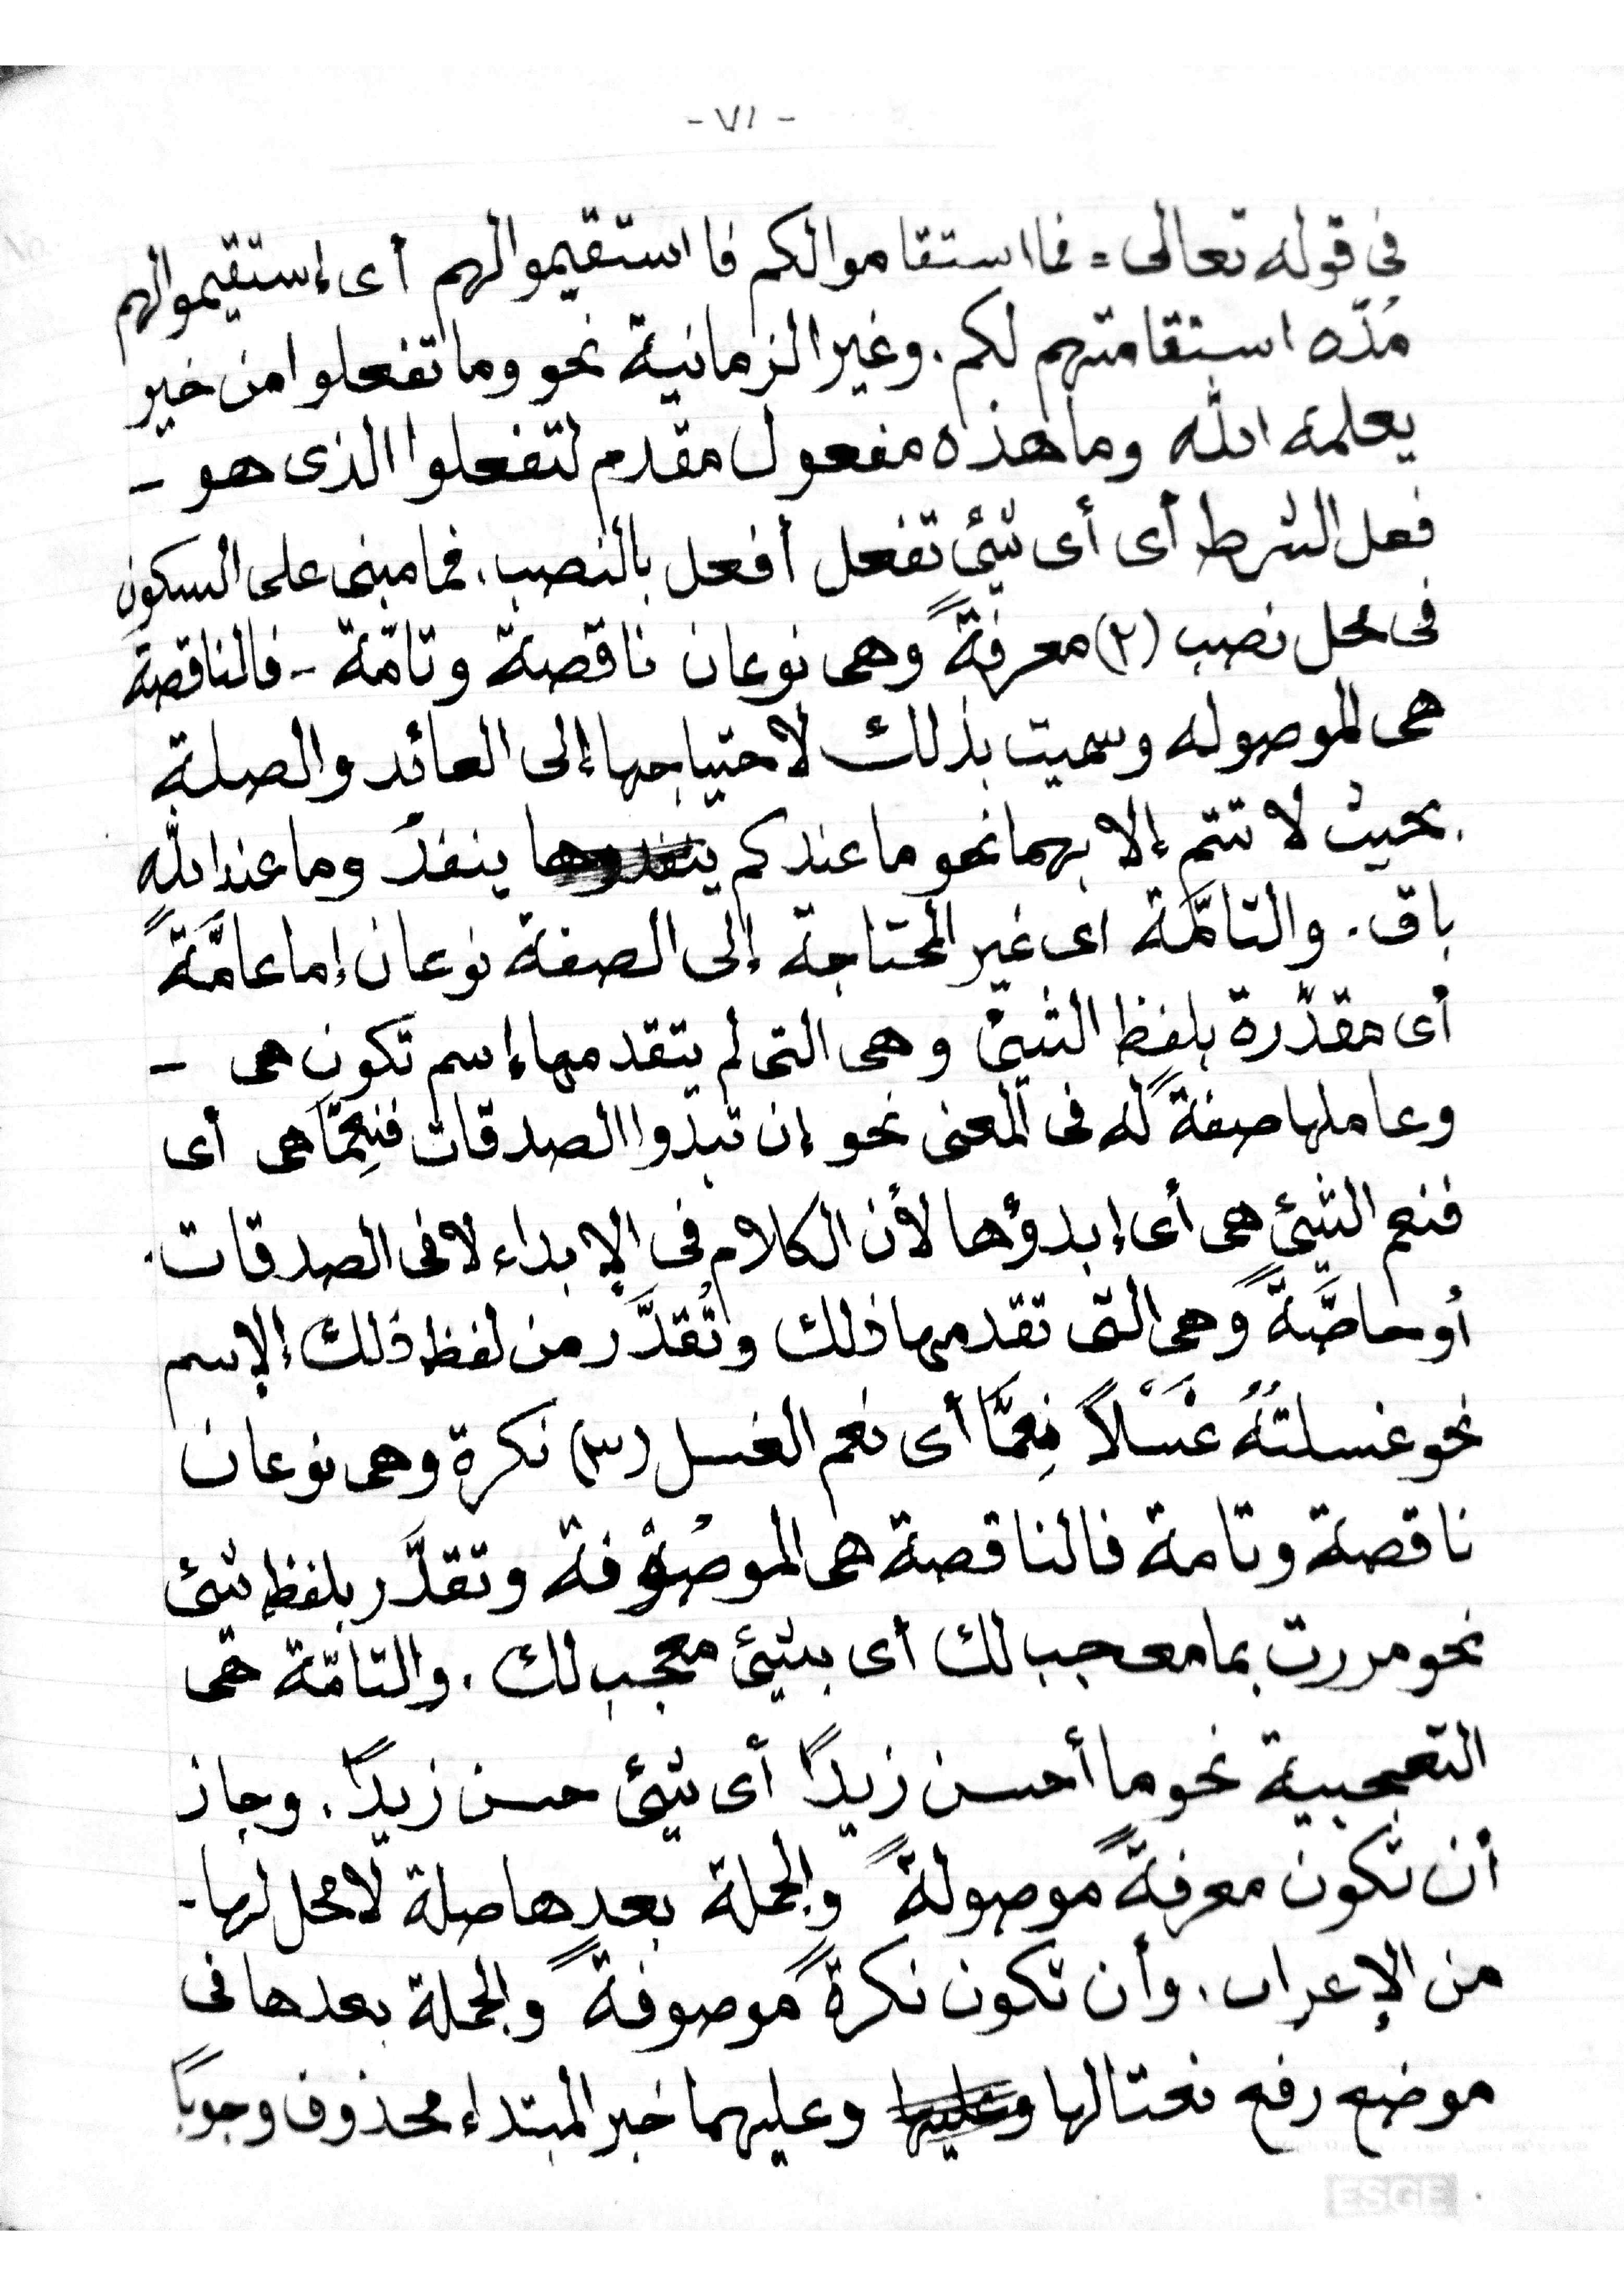 - ٧١ -
فى قوله تعالى = فما استقاموا لكم فا استقيموا لهم أى إستقيموا لهم
مُدّه استقامتهم لكم. وغير الزمانية نحو وما تفعلوا من خير
يعلمه الله وما هذه مفعول مقدم لتفعلوا الذى هو -
فعل الشرط أى أى شئ تفعل أفعل بالنصب. فما مبنى على السكون
فى محل نصب (٢) معرفةً وهى نوعان ناقصة وتامّة - فالناقصة
هى الموصوله وسميت بذلك لاحتياجها إلى العائد والصلة
بحيث لا تتم إلا بهما نحو ما عندكم ينفد وما عند الله
باق. والتامّة اى غير المحتاجة إلى الصفة نوعان إما عامَّةً
أى مقدّرة بلفظ الشيئ وهى التى لم يتقدمها إسم تكون هى -
وعاملها صفةً له فى المعنى نحو إن تبدوا الصدقات فنِعِمّا هى أى
فنعم الشيئ هى أى إبدؤها لأن الكلام فى الإبداء لا فى الصدقات.
أو خاصَّةً وهى التى تقدمها ذلك وتُقدَّر من لفظ ذلك الإسم
نحو غسلتُهُ غَسْلاً نِعِمَّا أى نعم الغسل (٣) نكرة وهى نوعان
ناقصة وتامة فالناقصة هى الموصُوْفة وتقدَّر بلفظ شئ
نحو مررت بما معجب لك أى بشئ معجب لك. والتامّة هى
التعجبية نحو ما أحسن زيدًا أى شئ حسن زيدًا. وجاز
أن تكون معرفةً موصولةً والجملة بعدها صلة لا محل لها -
من الإعراب. وأن تكون نكرةً موصوفةً والجملة بعدها فى
موضع رفع نعتا لها وعليهما خبر المبتداء محذوف وجوبًا
ESGE